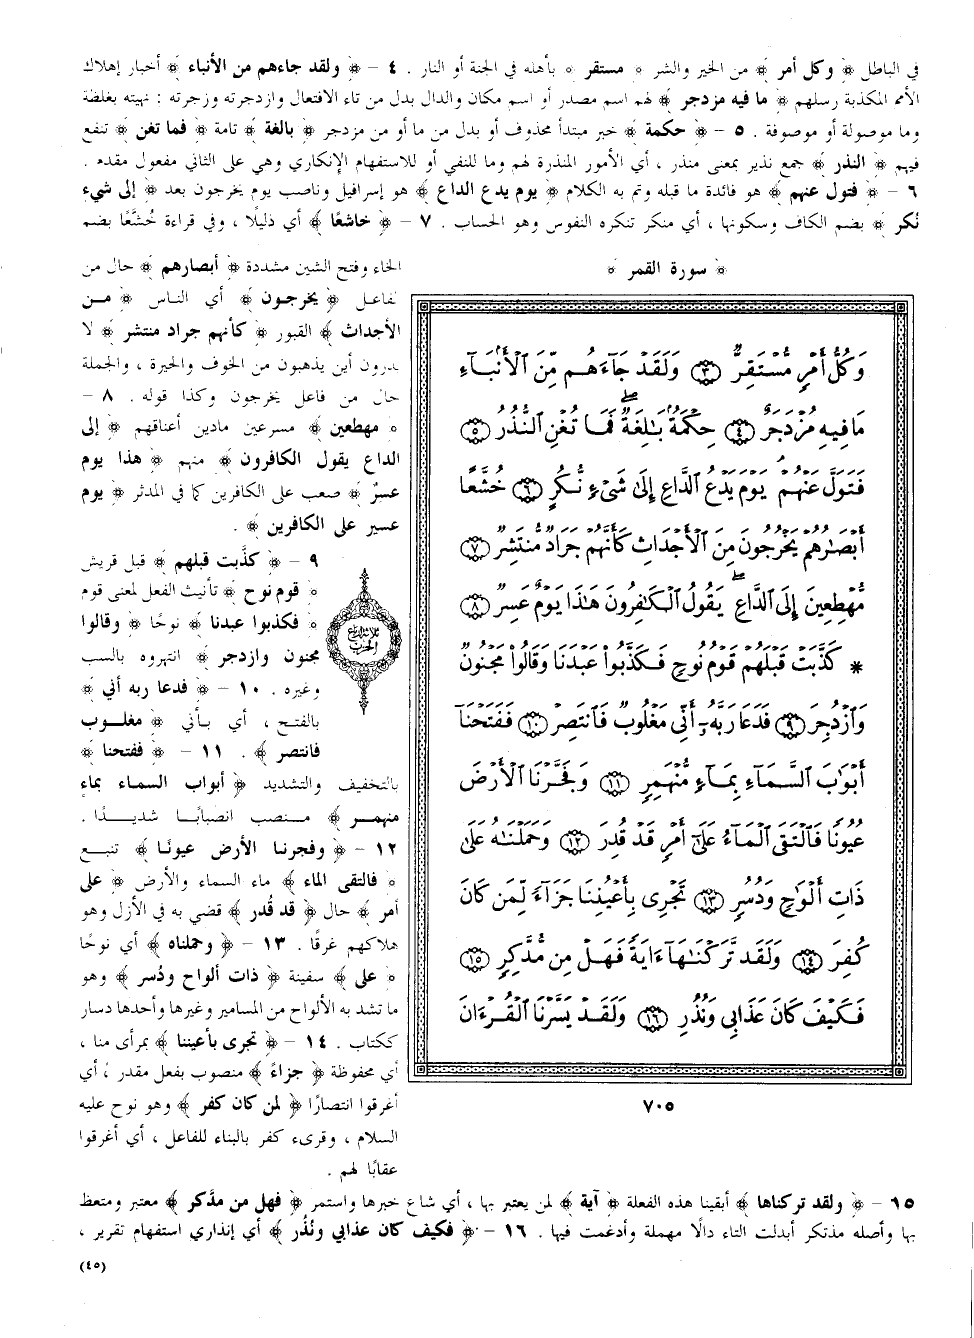 في الباطل ﴿ وكل أمر ﴾ من الخير والشر ﴿ مستقر ﴾ بأهله في الجنة أو النار . ٤ – ﴿ ولقد جاءهم من الأنباء ﴾ أخبار إهلاك
الأمم المكذبة رسلهم ﴿ ما فيه مزدجر ﴾ لهم اسم مصدر أو اسم مكان والدال بدل من تاء الافتعال وازدجرته وزجرته : نهيته بغلظة
وما موصولة أو موصوفة . ٥ – ﴿ حكمة ﴾ خبر مبتدأ محذوف أو بدل من ما أو من مزدجر ﴿ بالغة ﴾ تامة ﴿ فما تغن ﴾ تنفع
فيهم ﴿ النذر ﴾ جمع نذير بمعنى منذر ، أي الأمور المنذرة لهم وما للنفي أو للاستفهام الإنكاري وهي على الثاني مفعول مقدم .
٦ – ﴿ فتول عنهم ﴾ هو فائدة ما قبله وتم به الكلام ﴿ يوم يدع الداع ﴾ هو إسرافيل وناصب يوم يخرجون بعد ﴿ إلى شيء
نُكر ﴾ بضم الكاف وسكونها ، أي منكر تنكره النفوس وهو الحساب . ٧ – ﴿ خاشعًا ﴾ أي ذليلًا ، وفي قراءة خُشَّعًا بضم
الخاء وفتح الشين مشددة ﴿ أبصارهم ﴾ حال من
فاعل ﴿ يخرجون ﴾ أي الناس ﴿ من
الأجداث ﴾ القبور ﴿ كأنهم جراد منتشر ﴾ لا
يدرون أين يذهبون من الخوف والحيرة ، والجملة
حال من فاعل يخرجون وكذا قوله . ٨ –
﴿ مهطعين ﴾ مسرعين مادين أعناقهم ﴿ إلى
الداع يقول الكافرون ﴾ منهم ﴿ هذا يوم
عسرٌ ﴾ صعب على الكافرين كما في المدثر ﴿ يوم
عسير على الكافرين ﴾ .
٩ – ﴿ كذَّبت قبلهم ﴾ قبل قريش
﴿ قوم نوح ﴾ تأنيث الفعل لمعنى قوم
﴿ فكذبوا عبدنا ﴾ نوحًا ﴿ وقالوا
مجنون وازدجر ﴾ انتهروه بالسب
وغيره . ١٠ – ﴿ فدعا ربه أني ﴾
بالفتح ، أي بأني ﴿ مغلوب
فانتصر ﴾ . ١١ – ﴿ ففتحنا ﴾
بالتخفيف والتشديد ﴿ أبواب السماء بماء
منهمر ﴾ منصب انصبابًا شديدًا .
١٢ – ﴿ وفجرنا الأرض عيونًا ﴾ تنبع
﴿ فالتقى الماء ﴾ ماء السماء والأرض ﴿ على
أمر ﴾ حال ﴿ قد قُدر ﴾ قضي به في الأزل وهو
هلاكهم غرقًا . ١٣ – ﴿ وحملناه ﴾ أي نوحًا
﴿ على ﴾ سفينة ﴿ ذات ألواح ودُسر ﴾ وهو
ما تشد به الألواح من المسامير وغيرها وأحدها دسار
ككتاب . ١٤ – ﴿ تجري بأعيننا ﴾ بمرأى منا ،
أي محفوظة ﴿ جزاءً ﴾ منصوب بفعل مقدر ، أي
أغرقوا انتصارًا ﴿ لمن كان كفر ﴾ وهو نوح عليه
السلام ، وقرىء كفر بالبناء للفاعل ، أي أغرقوا
عقابًا لهم .
﴿ سورة القمر ﴾
وَكُلُّ أَمْرٍ مُّسْتَقِرٌّ ﴿٣﴾ وَلَقَدْ جَآءَهُم مِّنَ ٱلْأَنۢبَآءِ
مَا فِيهِ مُزْدَجَرٌ ﴿٤﴾ حِكْمَةٌۢ بَٰلِغَةٌ ۖ فَمَا تُغْنِ ٱلنُّذُرُ ﴿٥﴾
فَتَوَلَّ عَنْهُمْ ۘ يَوْمَ يَدْعُ ٱلدَّاعِ إِلَىٰ شَىْءٍ نُّكُرٍ ﴿٦﴾ خُشَّعًا
أَبْصَٰرُهُمْ يَخْرُجُونَ مِنَ ٱلْأَجْدَاثِ كَأَنَّهُمْ جَرَادٌ مُّنتَشِرٌ ﴿٧﴾
مُّهْطِعِينَ إِلَى ٱلدَّاعِ ۖ يَقُولُ ٱلْكَٰفِرُونَ هَٰذَا يَوْمٌ عَسِرٌ ﴿٨﴾
* كَذَّبَتْ قَبْلَهُمْ قَوْمُ نُوحٍ فَكَذَّبُوا۟ عَبْدَنَا وَقَالُوا۟ مَجْنُونٌ
وَٱزْدُجِرَ ﴿٩﴾ فَدَعَا رَبَّهُۥٓ أَنِّى مَغْلُوبٌ فَٱنتَصِرْ ﴿١٠﴾ فَفَتَحْنَآ
أَبْوَٰبَ ٱلسَّمَآءِ بِمَآءٍ مُّنْهَمِرٍ ﴿١١﴾ وَفَجَّرْنَا ٱلْأَرْضَ
عُيُونًا فَٱلْتَقَى ٱلْمَآءُ عَلَىٰٓ أَمْرٍ قَدْ قُدِرَ ﴿١٢﴾ وَحَمَلْنَٰهُ عَلَىٰ
ذَاتِ أَلْوَٰحٍ وَدُسُرٍ ﴿١٣﴾ تَجْرِى بِأَعْيُنِنَا جَزَآءً لِّمَن كَانَ
كُفِرَ ﴿١٤﴾ وَلَقَد تَّرَكْنَٰهَآ ءَايَةً فَهَلْ مِن مُّدَّكِرٍ ﴿١٥﴾
فَكَيْفَ كَانَ عَذَابِى وَنُذُرِ ﴿١٦﴾ وَلَقَدْ يَسَّرْنَا ٱلْقُرْءَانَ
ثلاثة أرباع
الحزب
٧٠٥
١٥ – ﴿ ولقد تركناها ﴾ أبقينا هذه الفعلة ﴿ آية ﴾ لمن يعتبر بها ، أي شاع خبرها واستمر ﴿ فهل من مدَّكر ﴾ معتبر ومتعظ
بها وأصله مذتكر أبدلت التاء دالًا مهملة وأدغمت فيها . ١٦ – ﴿ فكيف كان عذابي ونُذُر ﴾ أي إنذاري استفهام تقرير ،
(٤٥)